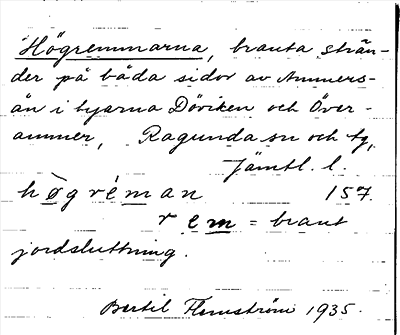 Högremmarna, branta strän-
der på båda sidor av Ammers-
ån i byarna Döviken och Över-
ammer, Ragunda sn och tg,
Jämtl. l.
högréman 157.
rem = brant
jordsluttning.
Bertil Flemström 1935.